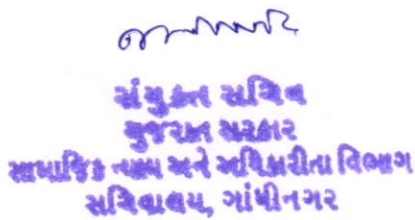 સંયુક્ત સચિવ
ગુજરાત સરકાર
સામાજિક ન્યાય અને અધિકારીતા વિભાગ
સચિવાલય, ગાંધીનગર